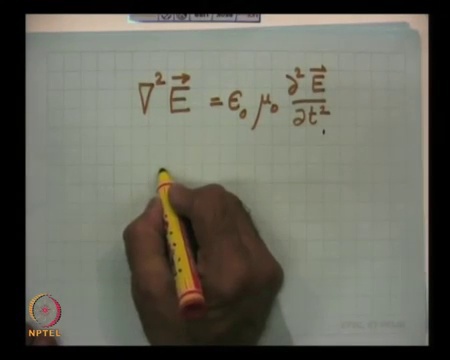 ∇² E⃗ = ε₀ μ₀ ∂² E⃗ / ∂t²
NPTEL